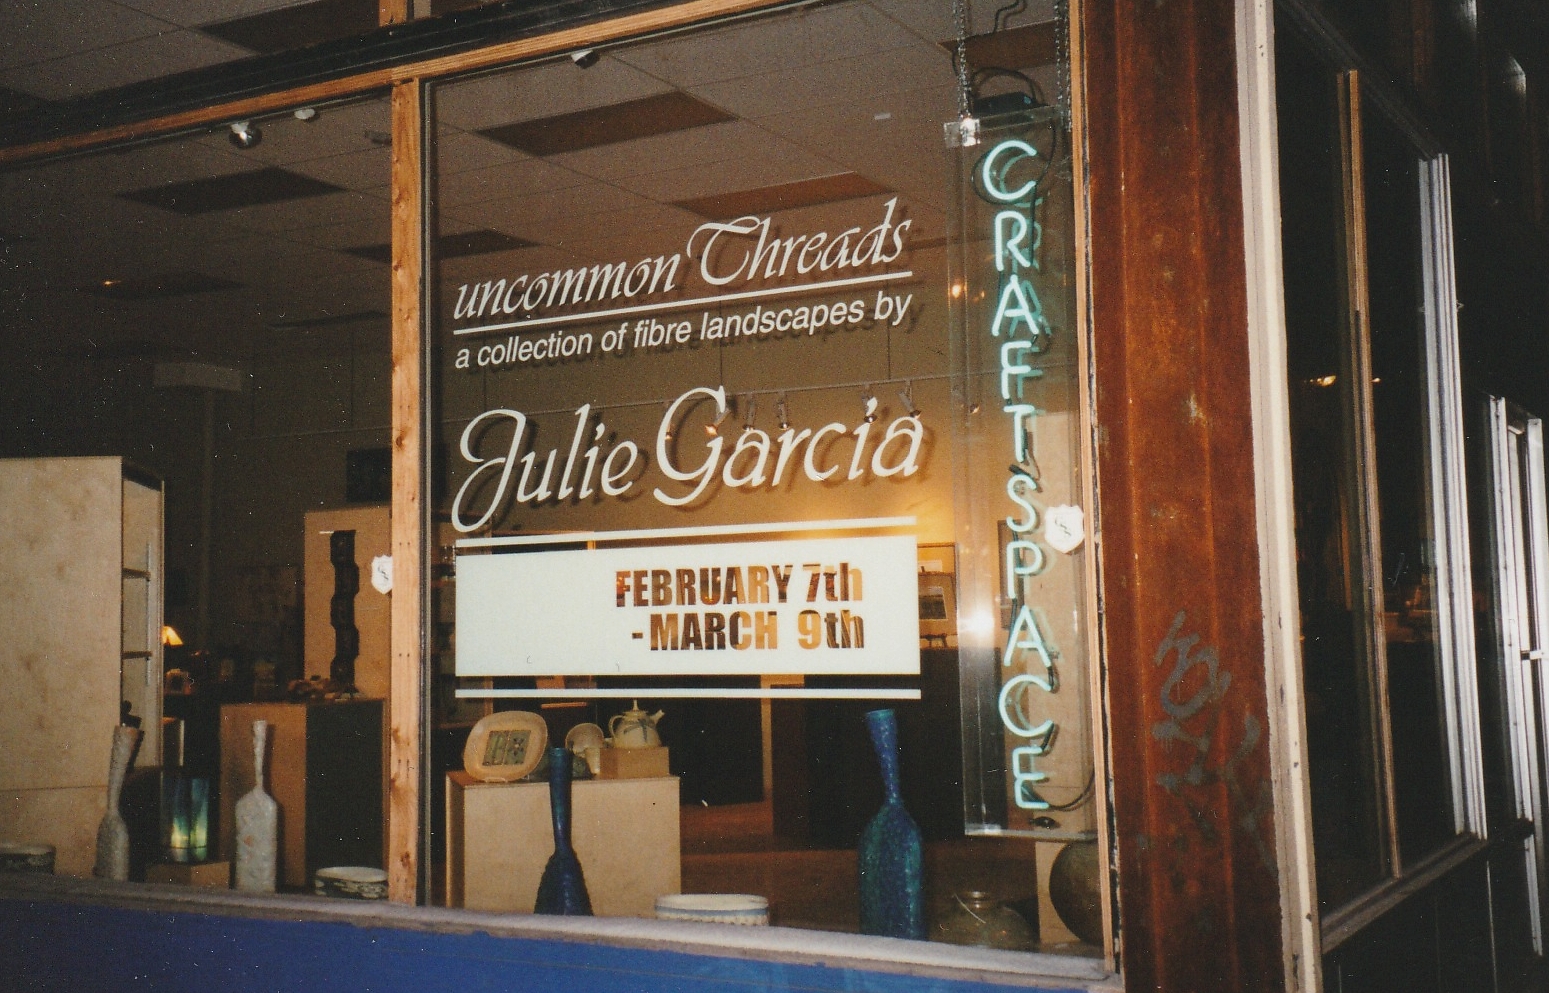 uncommon Threads
a collection of fibre landscapes by
Julie Garcia
FEBRUARY 7th
- MARCH 9th
CRAFTSPACE